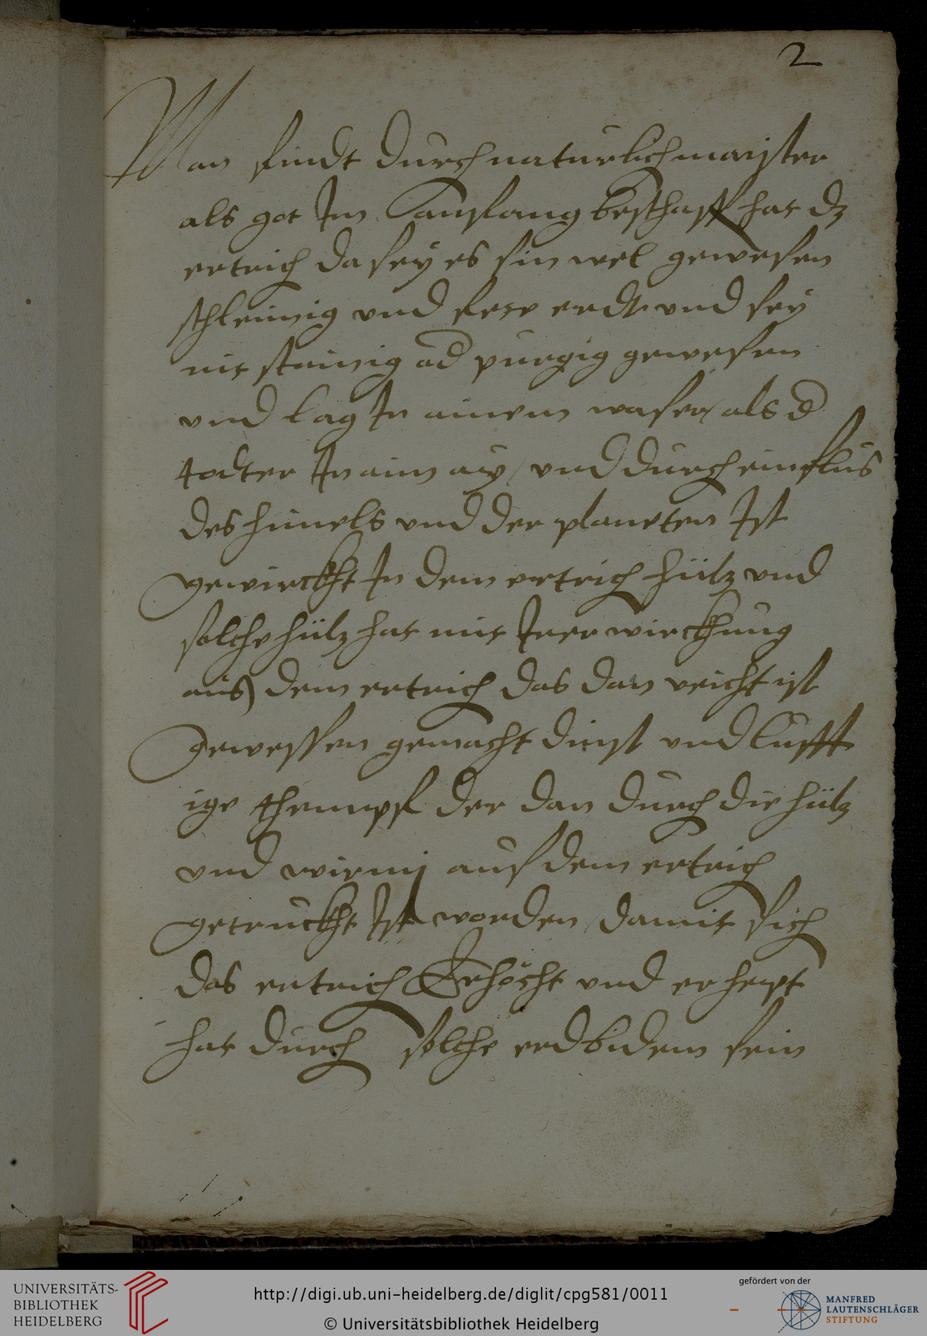 2
Man findt durch naturlich maister
als got Im anfang beschaff hat dz
ertrich da sey es sin wel gewesen
schleimig und fere erdt und sey
nit stainig od purgig gewesen
und lag In ainem waser / als d
todter In aim ay / und durch einflus
des himels und der planeten Ist
gewirckht In dem ertrich hilz und
solche hilz hat mit Irer wirckhung
aus dem ertrich das dan veicht ist
gewessen gemacht dinst und lufft
ige thempf der dan durch die hilz
und wirmj aus dem ertrich
getruckht Ist worden / damit sich
das ertrich Erhöcht und erhept
hat durch solche erdbidem sein
UNIVERSITÄTS-
BIBLIOTHEK
HEIDELBERG
http://digi.ub.uni-heidelberg.de/diglit/cpg581/0011
© Universitätsbibliothek Heidelberg
gefördert von der
MANFRED
LAUTENSCHLÄGER
STIFTUNG